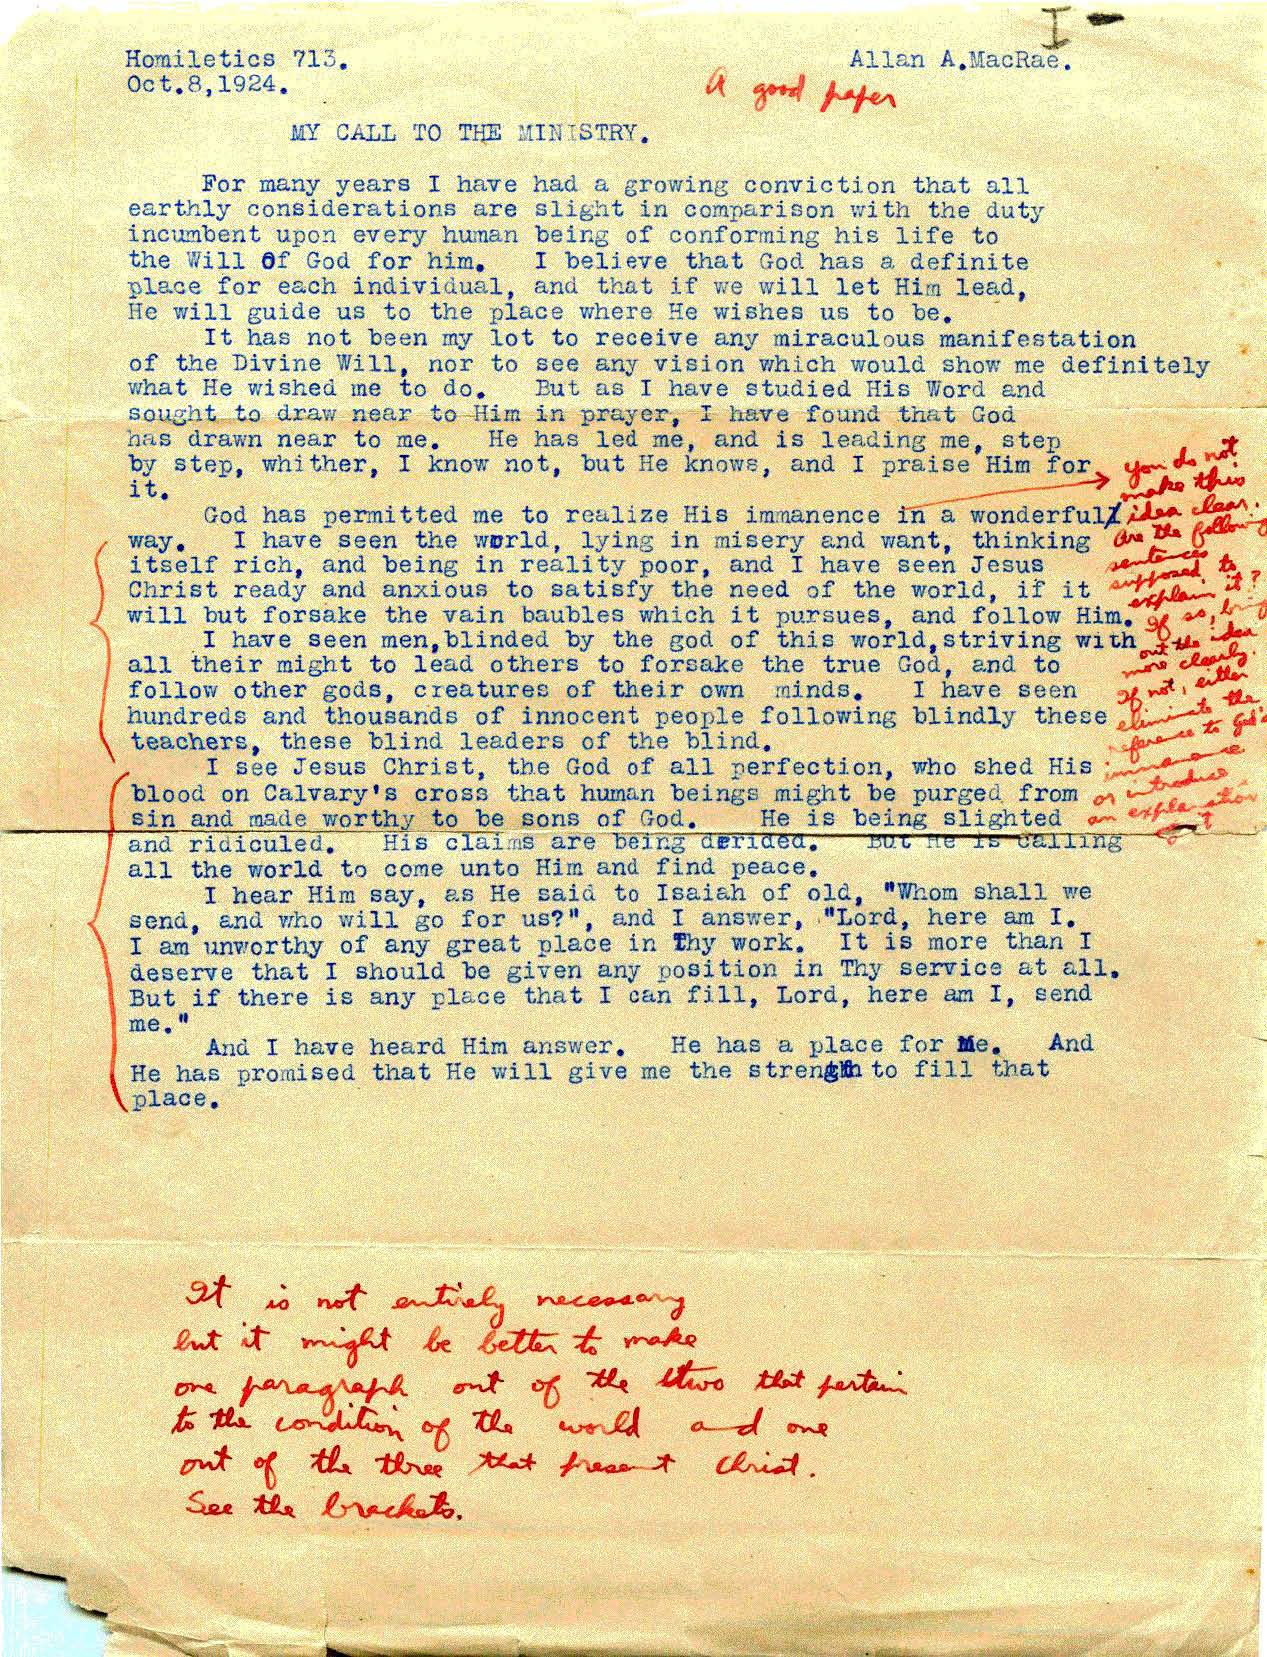 I -
Homiletics 713. Allan A.MacRae.
Oct.8,1924.
A good paper
MY CALL TO THE MINISTRY.
For many years I have had a growing conviction that all
earthly considerations are slight in comparison with the duty
incumbent upon every human being of conforming his life to
the Will Of God for him. I believe that God has a definite
place for each individual, and that if we will let Him lead,
He will guide us to the place where He wishes us to be.
It has not been my lot to receive any miraculous manifestation
of the Divine Will, nor to see any vision which would show me definitely
what He wished me to do. But as I have studied His Word and
sought to draw near to Him in prayer, I have found that God
has drawn near to me. He has led me, and is leading me, step
by step, whither, I know not, but He knows, and I praise Him for
it.
God has permitted me to realize His immanence in a wonderful
way. I have seen the world, lying in misery and want, thinking
itself rich, and being in reality poor, and I have seen Jesus
Christ ready and anxious to satisfy the need of the world, if it
will but forsake the vain baubles which it pursues, and follow Him.
I have seen men,blinded by the god of this world,striving with
all their might to lead others to forsake the true God, and to
follow other gods, creatures of their own minds. I have seen
hundreds and thousands of innocent people following blindly these
teachers, these blind leaders of the blind.
I see Jesus Christ, the God of all perfection, who shed His
blood on Calvary's cross that human beings might be purged from
sin and made worthy to be sons of God. He is being slighted
and ridiculed. His claims are being derided. But He is calling
all the world to come unto Him and find peace.
I hear Him say, as He said to Isaiah of old, "Whom shall we
send, and who will go for us?", and I answer, "Lord, here am I.
I am unworthy of any great place in Thy work. It is more than I
deserve that I should be given any position in Thy service at all.
But if there is any place that I can fill, Lord, here am I, send
me."
And I have heard Him answer. He has a place for Me. And
He has promised that He will give me the strength to fill that
place.
you do not
make this
idea clear.
Are the following
sentences
supposed to
explain it?
If so, bring
out the idea
more clearly.
If not, either
eliminate the
reference to God's
immanence
or introduce
an explanation
of it
It is not entirely necessary
but it might be better to make
one paragraph out of the two that pertain
to the condition of the world and one
out of the three that present Christ.
See the brackets.